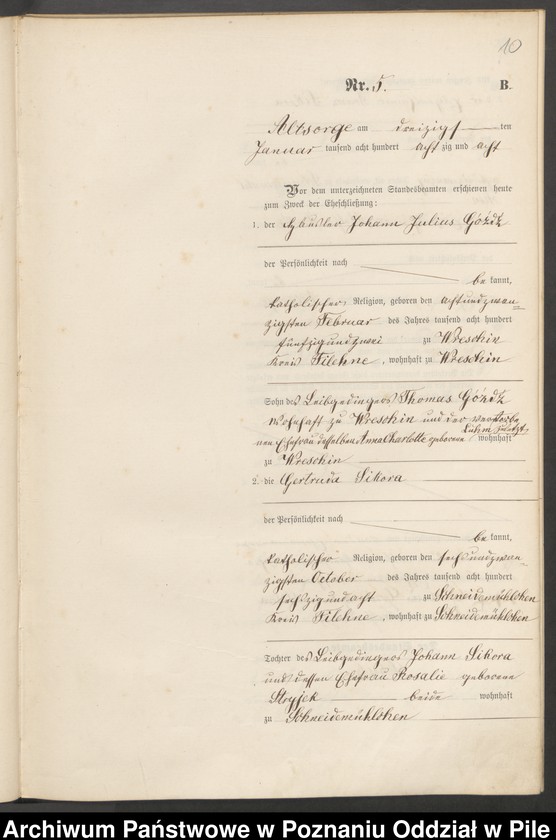 10
Nr. 5. B.
Altsorge am dreizigs ten
Januar tausend acht hundert acht zig und acht
Vor dem unterzeichneten Standesbeamten erschienen heute
zum Zweck der Eheschließung:
1. der Häusler Johann Julius Góźdź
der Persönlichkeit nach
be kannt,
katholischer Religion, geboren den achtundzwan=
zigsten Februar des Jahres tausend acht hundert
fünfzigundzwei zu Wreschin
Kreis Filehne, wohnhaft zu Wreschin
Sohn des Leibgedingers Thomas Góźdź
wohnhaft zu Wreschin und der verstorbe
nen Ehefrau desselben Anna Charlotte geborene wohnhaft
zuletzt
zu Wreschin
2. die Gertruda Sikora
der Persönlichkeit nach
be kannt,
katholischer Religion, geboren den sechsundzwan=
zigsten October des Jahres tausend acht hundert
sechszigundacht zu Schneidemühlchen
Kreis Filehne, wohnhaft zu Schneidemühlchen
Tochter des Leibgedingers Johann Sikora
und dessen Ehefrau Rosalie geborene
Stryjek beide wohnhaft
zu Schneidemühlchen
Archiwum Państwowe w Poznaniu Oddział w Pile